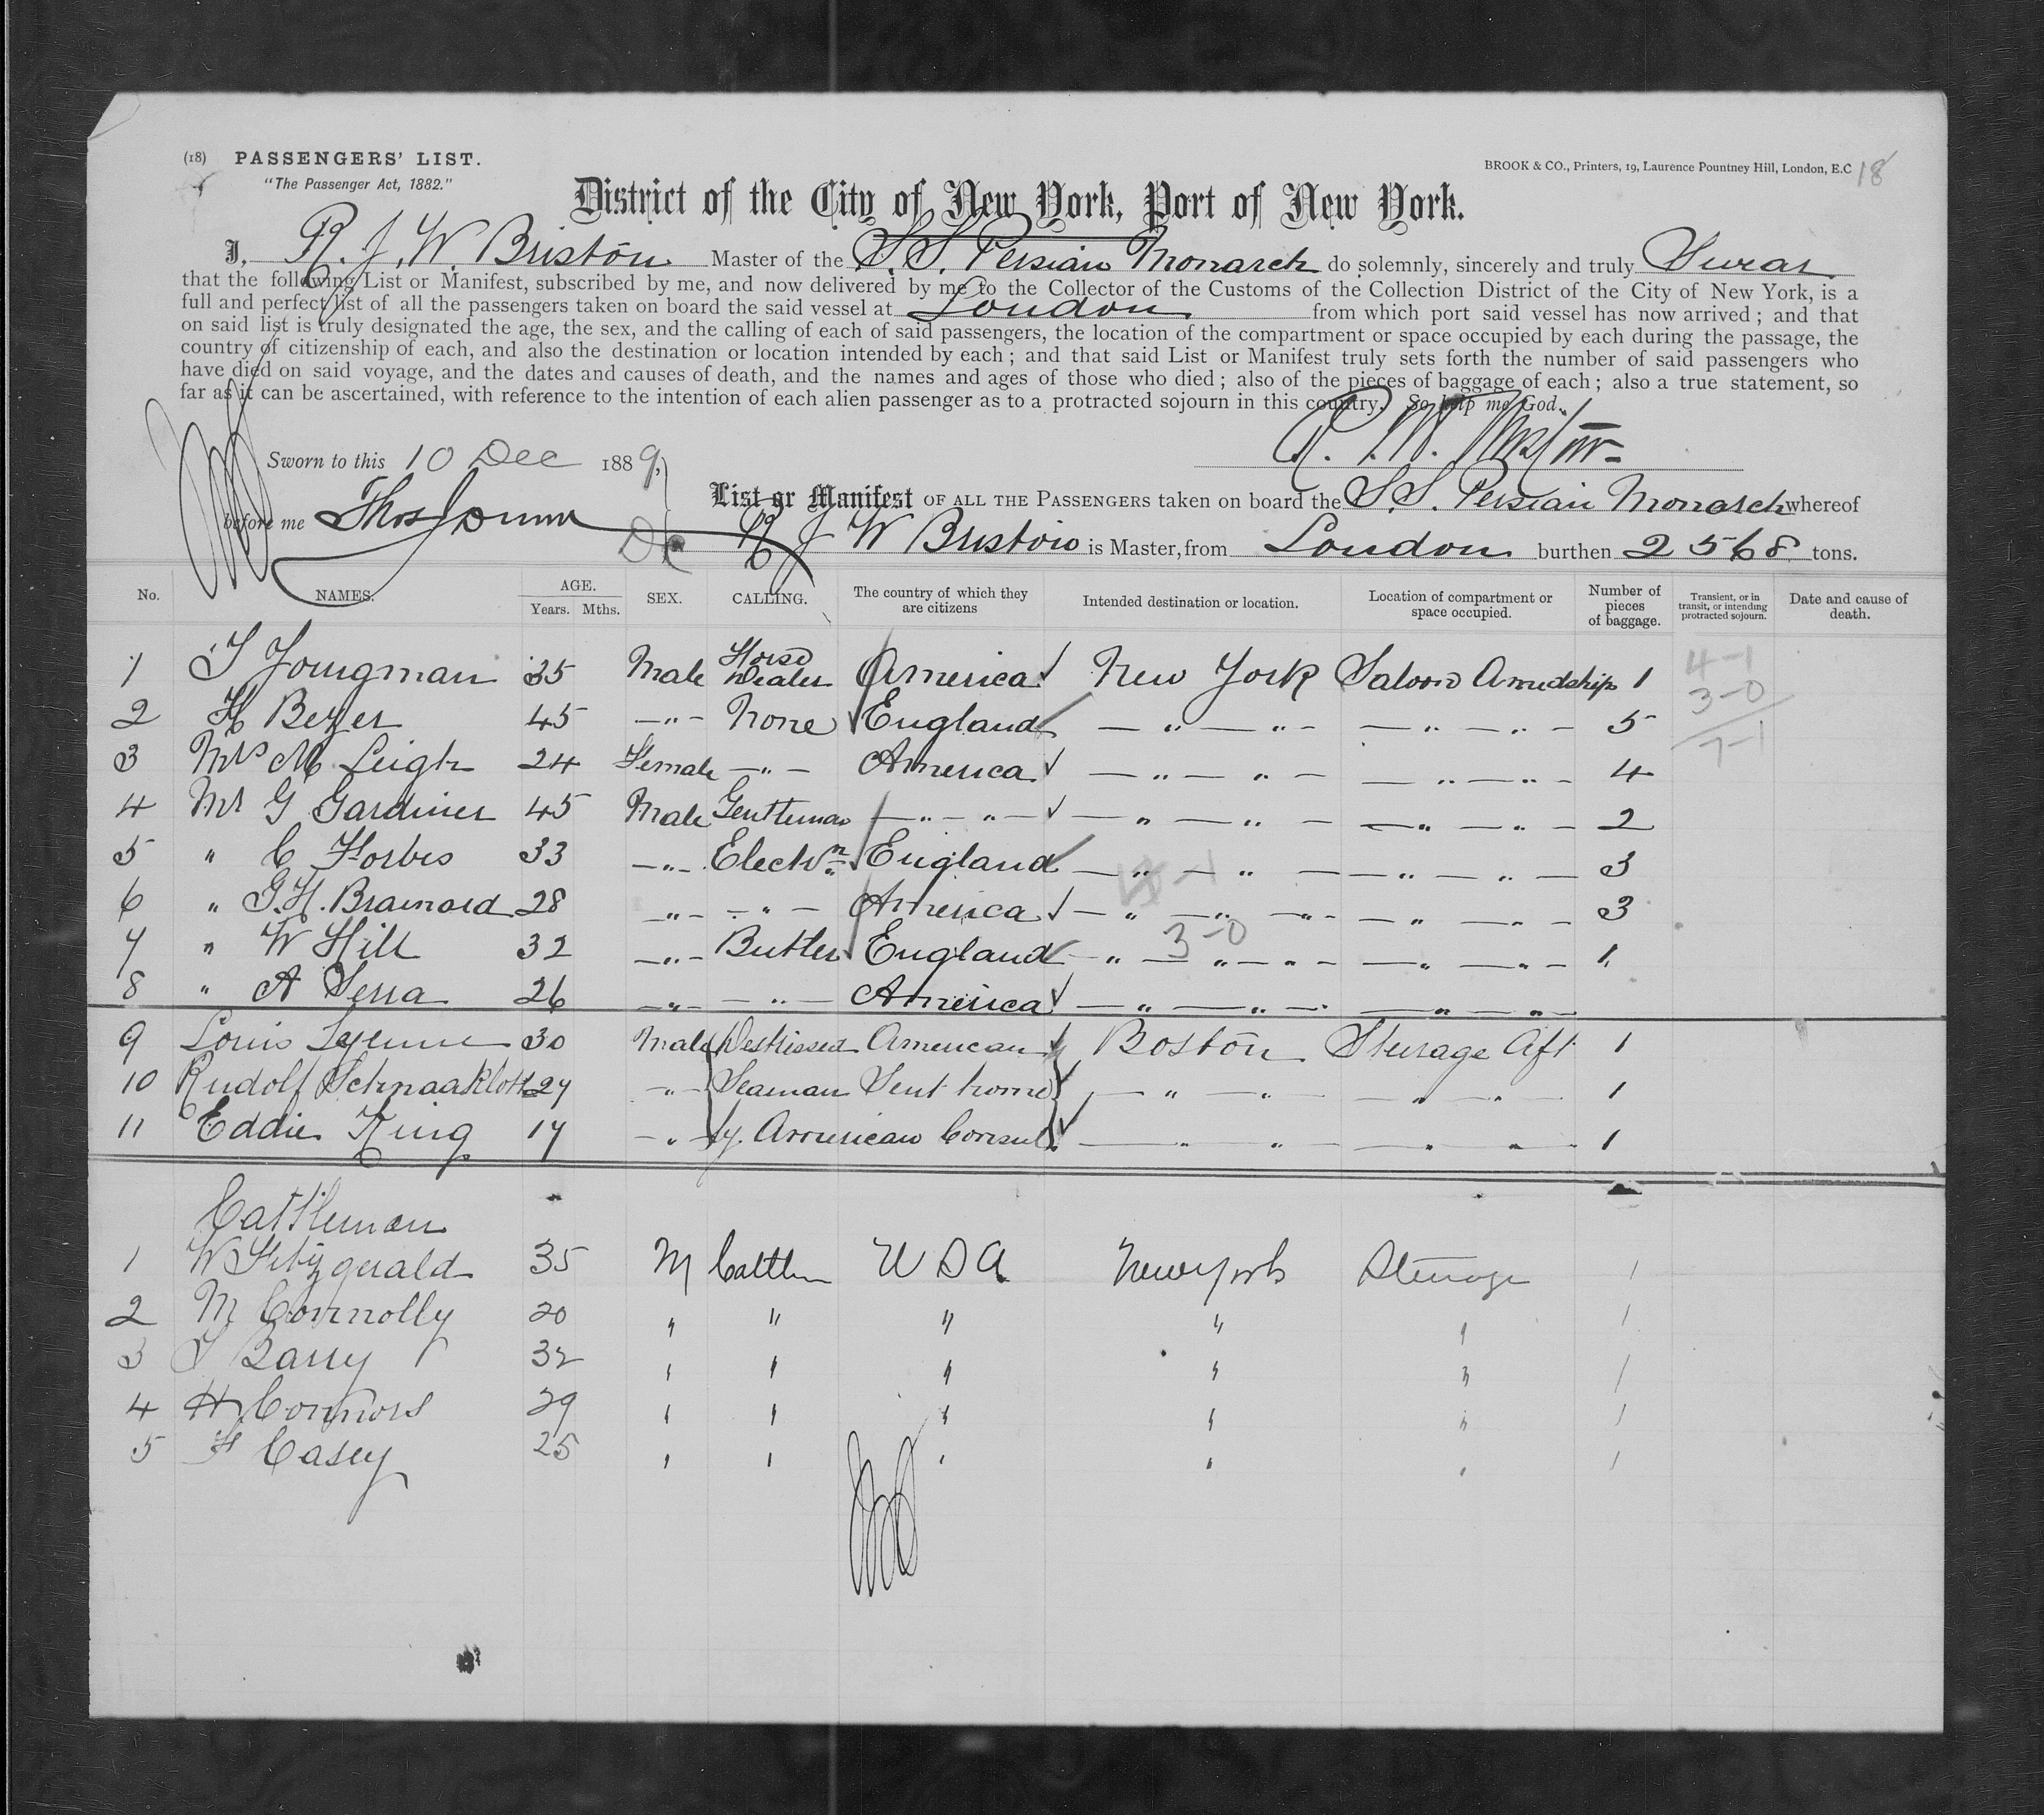 (18) PASSENGERS' LIST.
"The Passenger Act, 1882."
BROOK & CO., Printers, 19, Laurence Pountney Hill, London, E.C
18
District of the City of New York, Port of New York.
I, R. J. W. Bristow Master of the S.S. Persian Monarch do solemnly, sincerely and truly Swear
that the following List or Manifest, subscribed by me, and now delivered by me to the Collector of the Customs of the Collection District of the City of New York, is a
full and perfect list of all the passengers taken on board the said vessel at London from which port said vessel has now arrived; and that
on said list is truly designated the age, the sex, and the calling of each of said passengers, the location of the compartment or space occupied by each during the passage, the
country of citizenship of each, and also the destination or location intended by each; and that said List or Manifest truly sets forth the number of said passengers who
have died on said voyage, and the dates and causes of death, and the names and ages of those who died; also of the pieces of baggage of each; also a true statement, so
far as it can be ascertained, with reference to the intention of each alien passenger as to a protracted sojourn in this country. So help me God.
Sworn to this 10 Dec 1889,
before me Thos
List or Manifest OF ALL THE PASSENGERS taken on board the S.S. Persian Monarch whereof
R J W Bristow is Master, from London burthen 2568 tons.
No. NAMES. AGE. Years. Mths. SEX. CALLING. The country of which they are citizens Intended destination or location. Location of compartment or space occupied. Number of pieces of baggage. Transient, or in transit, or intending protracted sojourn. Date and cause of death.
1 Youngman 35 Male Horse Dealer America New York Saloon Amidships 1 4-1
2 H Beyer 45 —"— None England — " — " — — " — " — 5 3-0
3 Mrs M Leigh 24 Female —"— America — " — " — — " — " — 4 7-1
4 Mr G Gardiner 45 Male Gentleman — " — " — — " — " — — " — " — 2
5 " C Forbes 33 —"— Electrn England — " — " — — " — " — 3
6 " G.H. Brainard 28 —"— — " — America — " — " — " — — " — " — 3
7 " W Hill 32 —"— Butler England — " — " — " — — " — " — 1 3-0
8 " A Serra 26 —"— — " — America — " — " — — " — " —
9 Louis 30 Male Distressed American Boston Steerage Aft 1
10 Rudolf 27 —"— Seaman Sent home — " — " — — " — " — 1
11 Eddie King 17 —"— by American Consul — " — " — — " — " — 1
Cattleman
1 W Fitzgerald 35 M Cattlm U S A New York Steerage 1
2 M Connolly 20 " " " " " 1
3 Barry 32 " " " " " 1
4 H Connors 29 " " " " " 1
5 Casey 25 " " " " " 1